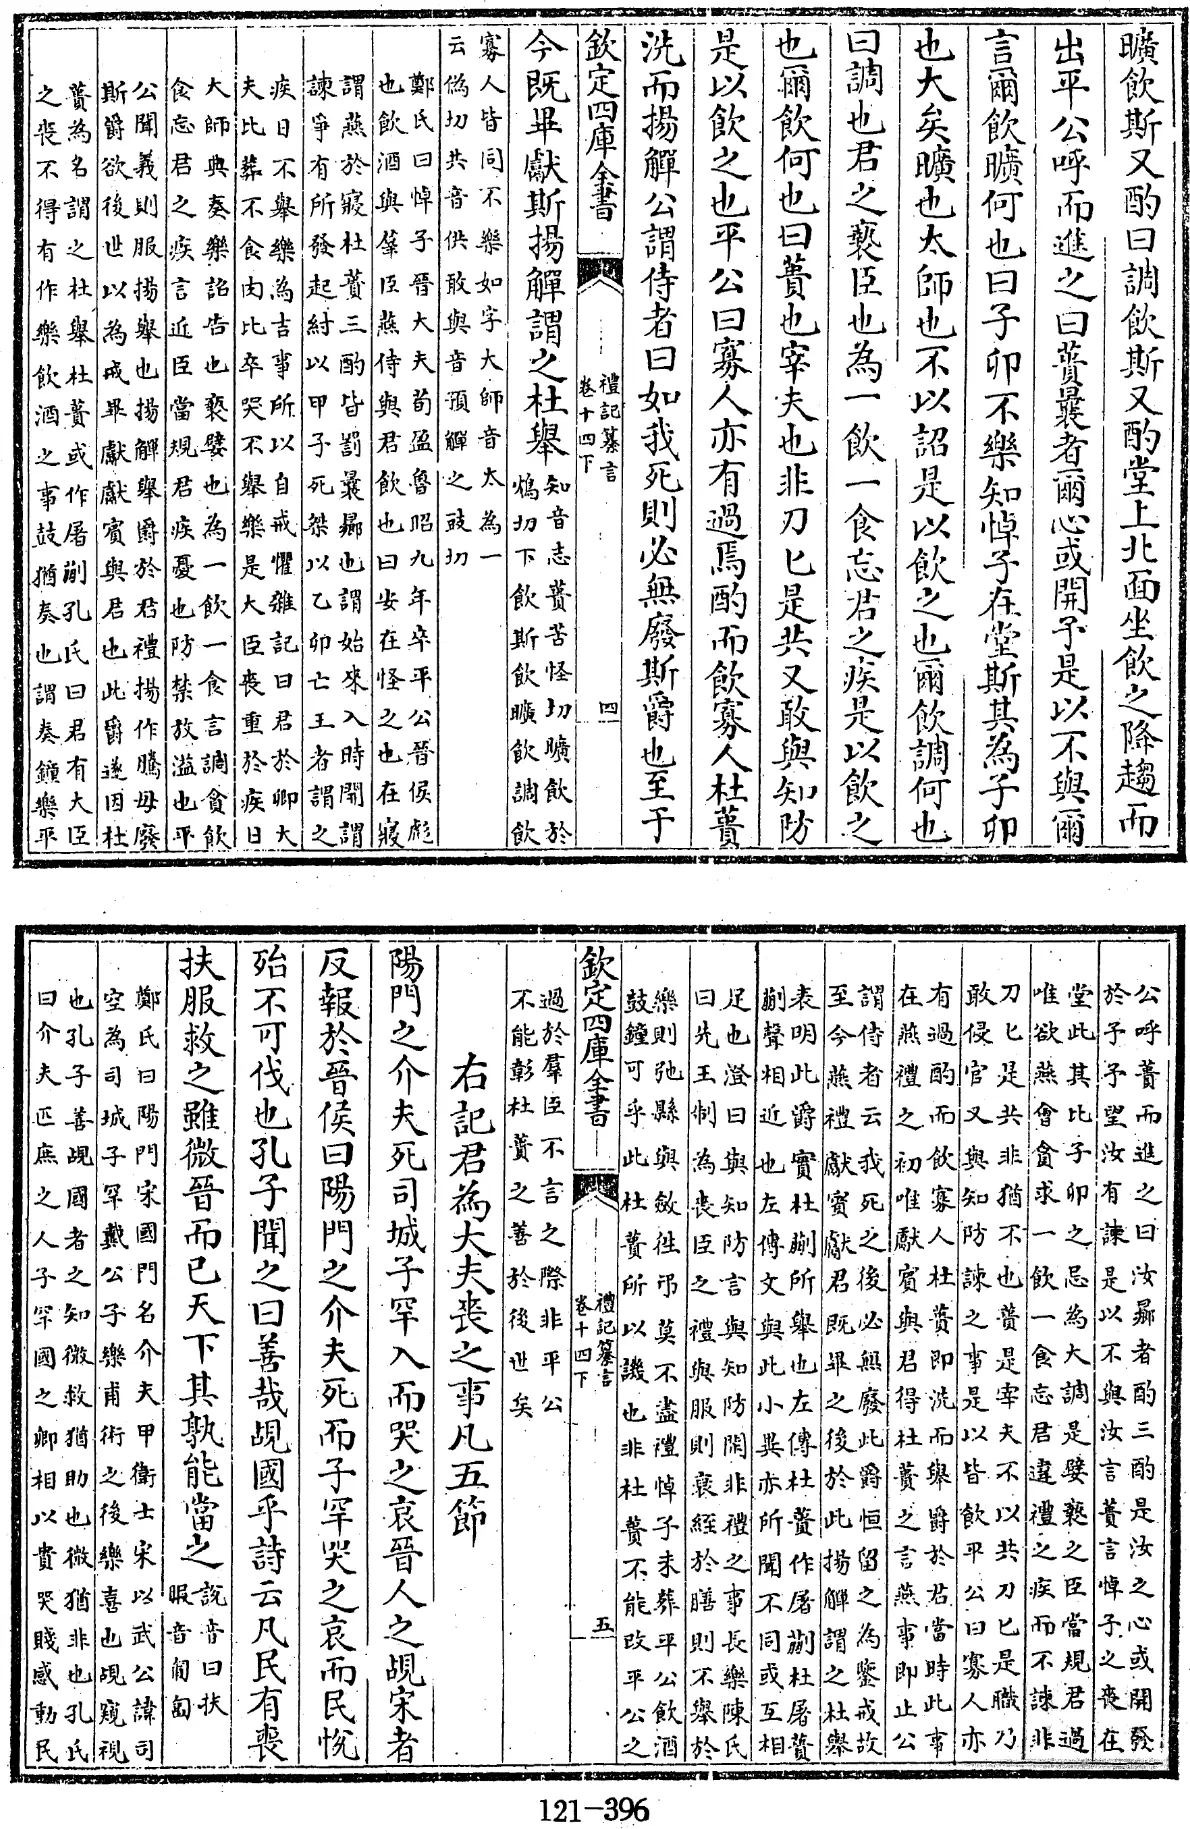 曠飲斯又酌曰調飲斯又酌堂上北面坐飲之降趨而
出平公呼而進之曰蕢曩者爾心或開予是以不與爾
言爾飲曠何也曰子卯不樂知悼子在堂斯其為子卯
也大矣曠也太師也不以詔是以飲之也爾飲調何也
曰調也君之褻臣也為一飲一食忘君之疾是以飲之
也爾飲何也曰蕢也宰夫也非刀匕是共又敢與知防
是以飲之也平公曰寡人亦有過焉酌而飲寡人杜蕢
洗而揚觶公謂侍者曰如我死則必無廢斯爵也至于
欽定四庫全書
禮記纂言
卷十四下
四
今既畢獻斯揚觶謂之杜舉
知音志蕢苦怪切曠飲於
鴆切下飲斯飲曠飲調飲
寡人皆同不樂如字大師音太為一
云偽切共音供敢與音預觶之豉切
鄭氏曰悼子晉大夫荀盈魯昭九年卒平公晉侯彪
也飲酒與羣臣燕侍與君飲也曰安在怪之也在寢
謂燕於寢杜蕢三酌皆罰曩曏也謂始來入時開謂
諫爭有所發起紂以甲子死桀以乙卯亡王者謂之
疾日不舉樂為吉事所以自戒懼雜記曰君於卿大
夫比葬不食肉比卒哭不舉樂是大臣喪重於疾日
大師典奏樂詔告也褻嬖也為一飲一食言調貪飲
食忘君之疾言近臣當規君疾憂也防禁放溢也平
公聞義則服揚舉也揚觶舉爵於君禮揚作騰毋廢
斯爵欲後世以為戒畢獻獻賓與君也此爵遂因杜
蕢為名謂之杜舉杜蕢或作屠蒯孔氏曰君有大臣
之喪不得有作樂飲酒之事鼓猶奏也謂奏鐘樂平
公呼蕢而進之曰汝曏者酌三酌是汝之心或開發
於予予望汝有諫是以不與汝言蕢言悼子之喪在
堂此其比子卯之忌為大調是嬖褻之臣當規君過
唯欲燕會貪求一飲一食忘君違禮之疾而不諫非
刀匕是共非猶不也蕢是宰夫不以共刀匕是職乃
敢侵官又與知防諫之事是以皆飲平公曰寡人亦
有過酌而飲寡人杜蕢即洗而舉爵於君當時此事
在燕禮之初唯獻賓與君得杜蕢之言燕事即止公
謂侍者云我死之後必無廢此爵恒留之為鑒戒故
至今燕禮獻賓獻君既畢之後於此揚觶謂之杜舉
表明此爵實杜蒯所舉也左傳杜蕢作屠蒯杜屠蕢
蒯聲相近也左傳文與此小異亦所聞不同或互相
足也澄曰與知防言與知防閑非禮之事長樂陳氏
曰先王制為喪臣之禮與服則衰絰於膳則不舉於
樂則弛縣與斂往弔莫不盡禮悼子未葬平公飲酒
鼓鐘可乎此杜蕢所以譏也非杜蕢不能改平公之
欽定四庫全書
禮記纂言
卷十四下
五
過於羣臣不言之際非平公
不能彰杜蕢之善於後世矣
右記君為大夫喪之事凡五節
陽門之介夫死司城子罕入而哭之哀晉人之覘宋者
反報於晉侯曰陽門之介夫死而子罕哭之哀而民悅
殆不可伐也孔子聞之曰善哉覘國乎詩云凡民有喪
扶服救之雖微晉而已天下其孰能當之
說音曰扶
服音匍匐
鄭氏曰陽門宋國門名介夫甲衛士宋以武公諱司
空為司城子罕戴公子樂甫術之後樂喜也覘窺視
也孔子善覘國者之知微救猶助也微猶非也孔氏
曰介夫匹庶之人子罕國之卿相以貴哭賤感動民
121-396